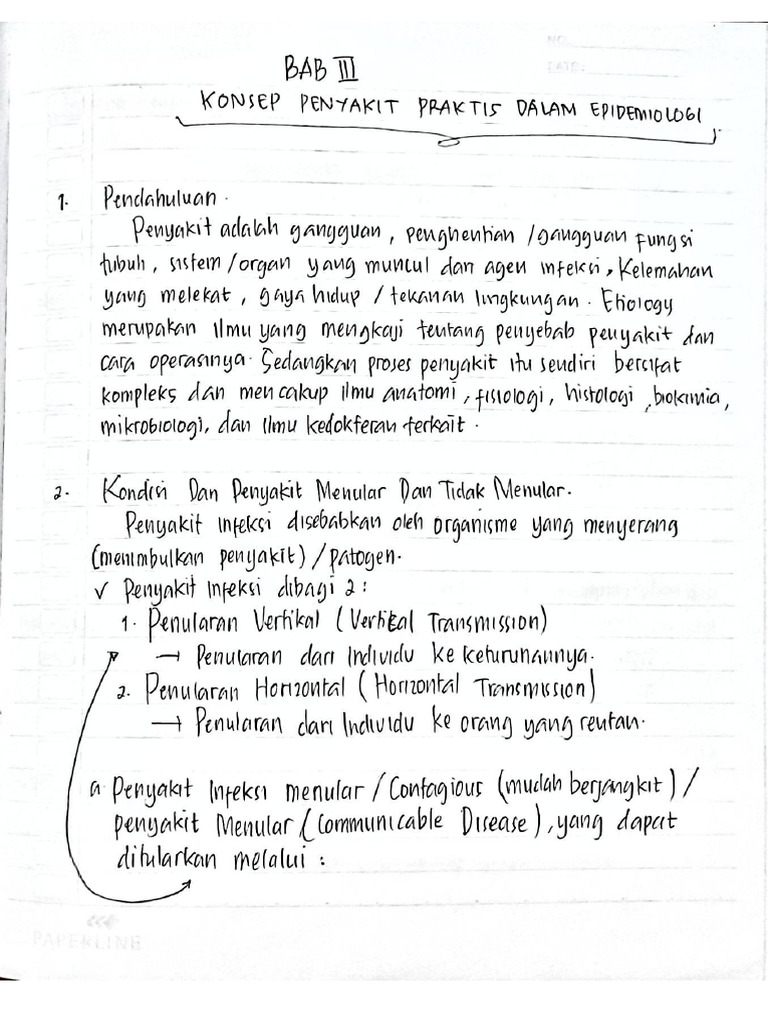 NO.
DATE:
BAB III
KONSEP PENYAKIT PRAKTIS DALAM EPIDEMIOLOGI
1. Pendahuluan.
Penyakit adalah gangguan, penghentian /gangguan fungsi
tubuh, sistem/organ yang muncul dari agen infeksi, Kelemahan
yang melekat, gaya hidup / tekanan lingkungan. Etiology
merupakan ilmu yang mengkaji tentang penyebab penyakit dan
cara operasinya. Sedangkan proses penyakit itu sendiri bersifat
kompleks dan mencakup ilmu anatomi, fisiologi, histologi, biokimia,
mikrobiologi, dan ilmu kedokteran terkait.
2. Kondisi Dan Penyakit Menular Dan Tidak Menular.
Penyakit infeksi disebabkan oleh organisme yang menyerang
(menimbulkan penyakit) / patogen.
✓ Penyakit infeksi dibagi 2 :
1. Penularan Vertikal (Vertikal Transmission)
→ Penularan dari Individu ke keturunannya.
2. Penularan Horizontal (Horizontal Transmission)
→ Penularan dari Individu ke orang yang rentan.
a. Penyakit Infeksi menular / Contagious (mudah berjangkit) /
penyakit Menular (Communicable Disease), yang dapat
ditularkan melalui :
PAPERLINE